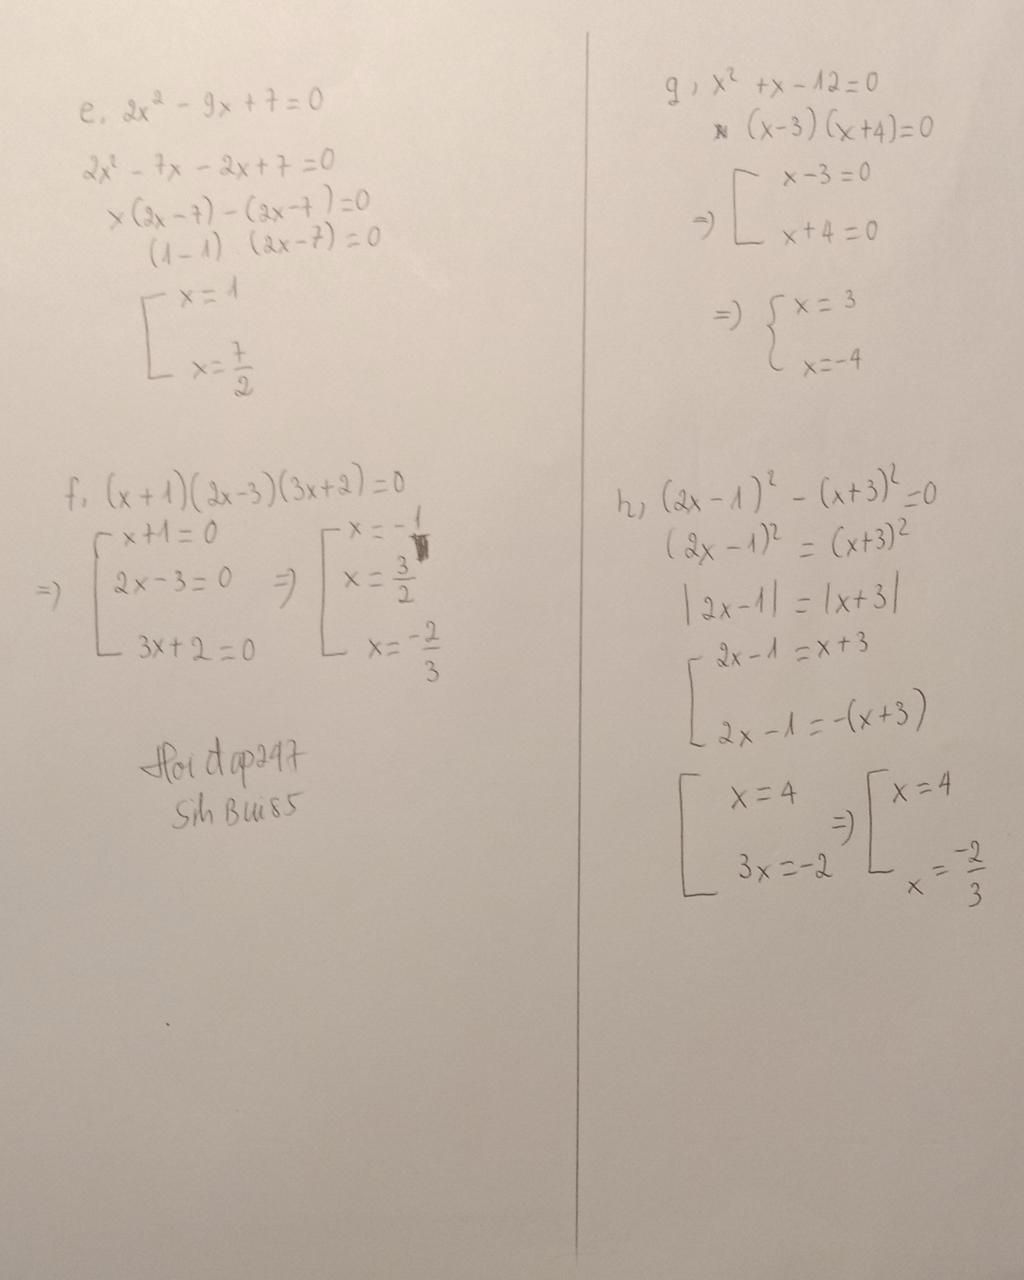 e, 2x² - 9x + 7 = 0
2x² - 7x - 2x + 7 = 0
x(2x-7) - (2x-7) = 0
(1-1) (2x-7) = 0
[ x = 1
x = 7/2
f, (x+1)(2x-3)(3x+2) = 0
=> [ x+1 = 0
2x-3 = 0
3x+2 = 0
=> [ x = -1
x = 3/2
x = -2/3
Hoidap247
Sih Buis5
g, x² + x - 12 = 0
(x-3)(x+4) = 0
=> [ x-3 = 0
x+4 = 0
=> { x = 3
x = -4
h, (2x-1)² - (x+3)² = 0
(2x-1)² = (x+3)²
|2x-1| = |x+3|
[ 2x-1 = x+3
2x-1 = -(x+3)
[ x = 4
3x = -2
=> [ x = 4
x = -2/3